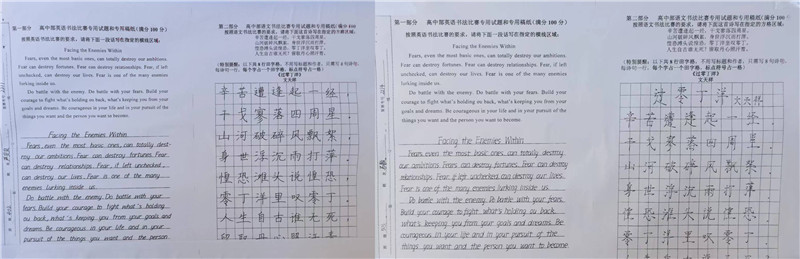 第一部分 高中部英语书法比赛专用试题和专用稿纸(满分100分)
按照英语书法比赛的要求,请将下面一段话写在指定的横线区域。
Facing the Enemies Within
Fears, even the most basic ones, can totally destroy our ambitions.
Fear can destroy fortunes. Fear can destroy relationships. Fear, if left
unchecked, can destroy our lives. Fear is one of the many enemies
lurking inside us.
Do battle with the enemy. Do battle with your fears. Build your
courage to fight what's holding ou back, what's keeping you from your
goals and dreams. Be courageous in your life and in your pursuit of
the things you want and the person you want to become.
Facing the Enemies Within
Fears, even the most basic ones, can totally dest-
roy our ambitions. Fear can destroy fortunes. Fear
can destroy relationships. Fear, if left unchecked,
can destroy our lives. Fear is one of the many
enemies lurking inside us.
Do battle with the enemy. Do battle with your
fears. Build your courage to fight what's holding
ou back, what's keeping you from your goals and
dreams. Be courageous in your life and in your
pursuit of the things you want and the person
第二部分 高中部语文书法比赛专用试题和专用稿纸(满分100分)
辛苦遭逢起一经,干戈寥落四周星。
山河破碎风飘絮,身世浮沉雨打萍。
惶恐滩头说惶恐,零丁洋里叹零丁。
人生自古谁无死?留取丹心照汗青。
《过零丁洋》
文天祥
辛苦遭逢起一经,
干戈寥落四周星。
山河破碎风飘絮,
身世浮沉雨打萍。
惶恐滩头说惶恐,
零丁洋里叹零丁。
人生自古谁无死?
第一部分 高中部英语书法比赛专用试题和专用稿纸(满分100分)
按照英语书法比赛的要求,请将下面一段话写在指定的横线区域。
Facing the Enemies Within
Fears, even the most basic ones, can totally destroy our ambitions.
Fear can destroy fortunes. Fear can destroy relationships. Fear, if left
unchecked, can destroy our lives. Fear is one of the many enemies
lurking inside us.
Do battle with the enemy. Do battle with your fears. Build your
courage to fight what's holding ou back, what's keeping you from your
goals and dreams. Be courageous in your life and in your pursuit of
the things you want and the person you want to become.
Facing the Enemies Within
Fears, even the most basic ones, can totally destroy
our ambitions. Fear can destroy fortunes. Fear can destroy
relationships. Fear, if left unchecked, can destroy our lives.
Fear is one of the many enemies lurking inside us.
Do battle with the enemy. Do battle with your fears.
Build your courage to fight what's holding ou back,
what's keeping you from your goals and dreams. Be
courageous in your life and in your pursuit of the
things you want and the person you want to become.
第二部分 高中部语文书法比赛专用试题和专用稿纸(满分100分)
《过零丁洋》
文天祥
过零丁洋
文天祥
辛苦遭逢起一经,
干戈寥落四周星。
山河破碎风飘絮,
身世浮沉雨打萍。
惶恐滩头说惶恐,
零丁洋里叹零丁。